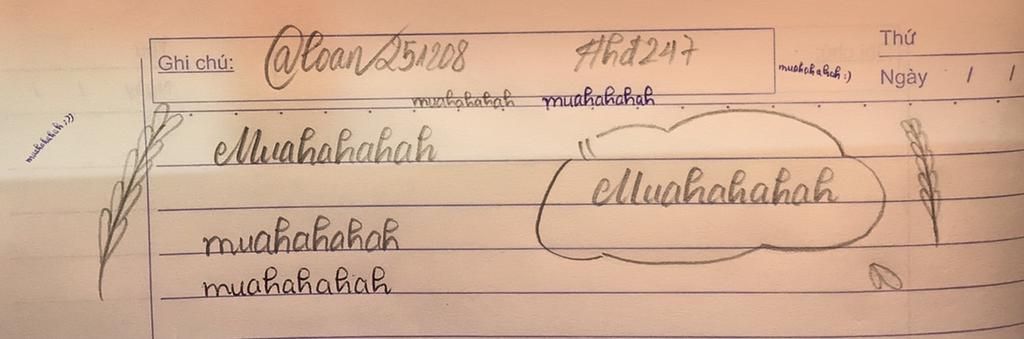 Thứ
Ghi chú: @loan251208 #hd247
muahahahah :) Ngày / /
muahahahah muahahahah
muahahahah :))
Muahahahah
" Muahahahah
muahahahah
muahahahah